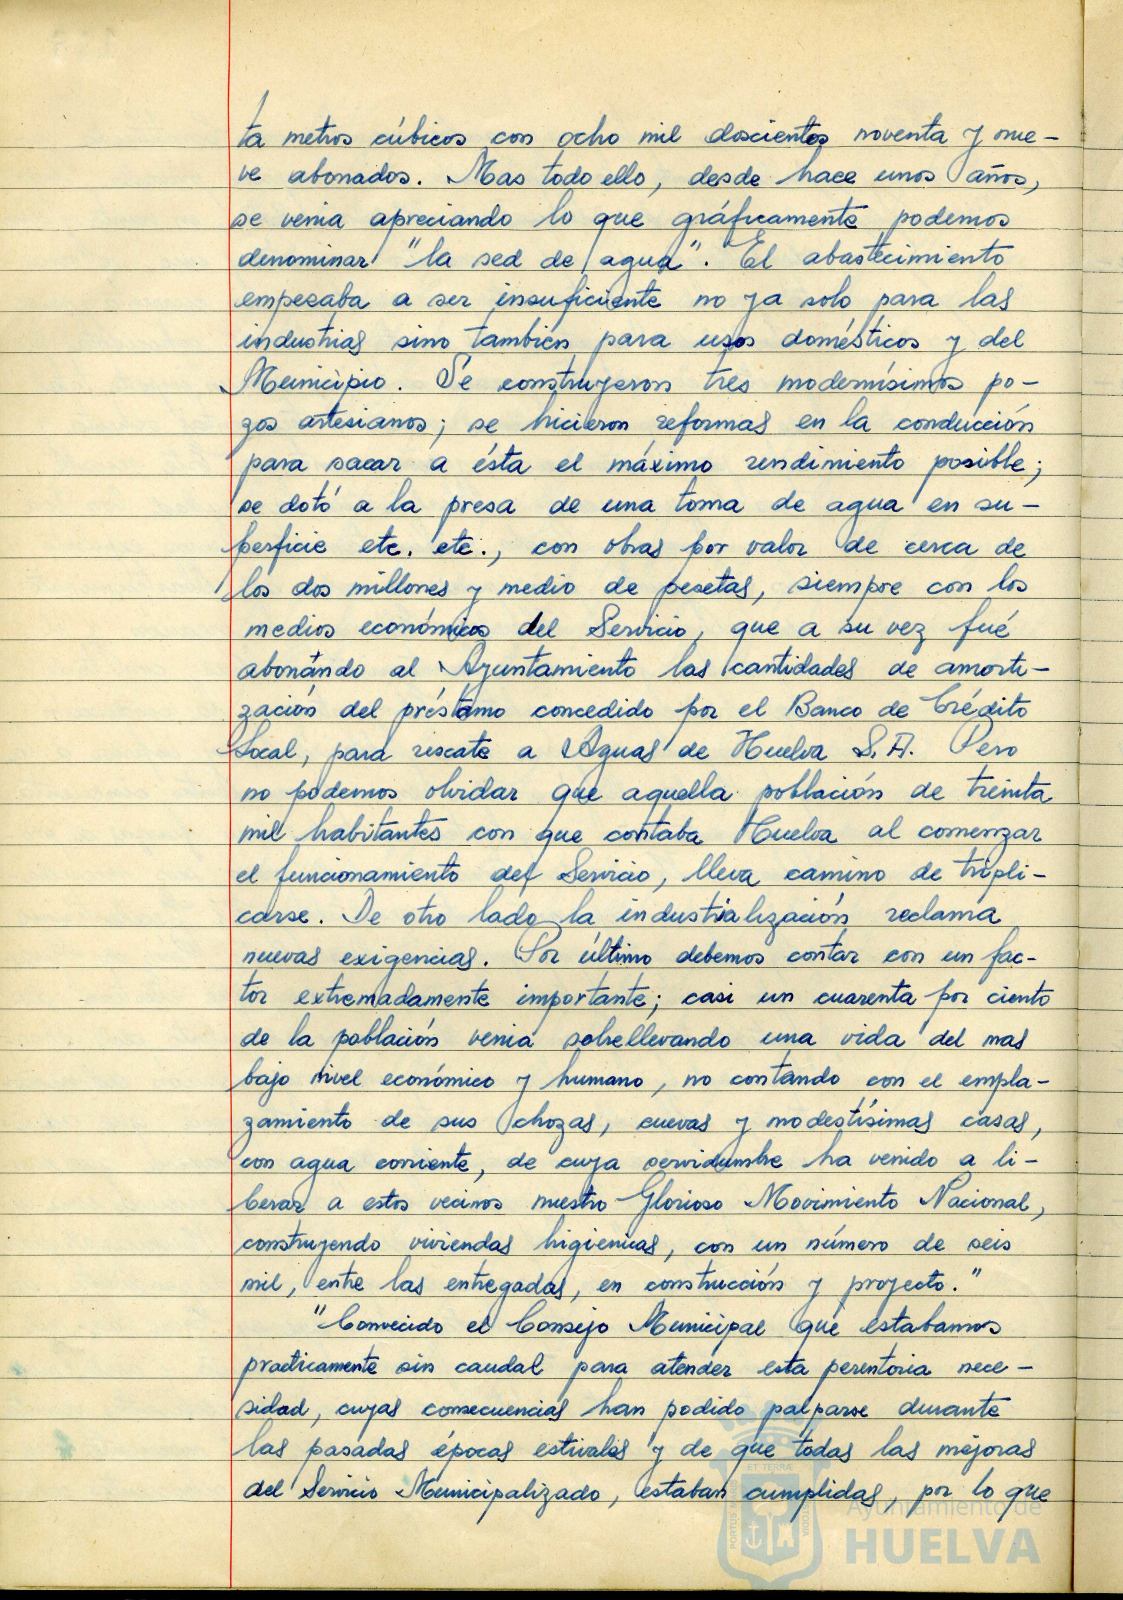 ta metros cúbicos con ocho mil doscientos noventa y nue-
ve abonados. Mas todo ello, desde hace unos años,
se venia apreciando lo que gráficamente podemos
denominar "la sed de agua". El abastecimiento
empezaba a ser insuficiente no ya solo para las
industrias sino también para usos domésticos y del
Municipio. Se construyeron tres modernísimos po-
zos artesianos; se hicieron reformas en la conducción
para sacar a ésta el máximo rendimiento posible;
se dotó a la presa de una toma de agua en su-
perficie etc. etc., con obras por valor de cerca de
los dos millones y medio de pesetas, siempre con los
medios económicos del Servicio, que a su vez fué
abonándo al Ayuntamiento las cantidades de amorti-
zación del préstamo concedido por el Banco de Crédito
Local, para rescate a Aguas de Huelva S.A. Pero
no podemos olvidar que aquella población de treinta
mil habitantes con que contaba Huelva al comenzar
el funcionamiento del Servicio, lleva camino de tripli-
carse. De otro lado la industrialización reclama
nuevas exigencias. Por último debemos contar con un fac-
tor extremadamente importante; casi un cuarenta por ciento
de la población venia sobrellevando una vida del mas
bajo nivel económico y humano, no contando con el empla-
zamiento de sus chozas, cuevas y modestísimas casas,
con agua corriente, de cuya servidumbre ha venido a li-
berar a estos vecinos nuestro Glorioso Movimiento Nacional,
construyendo viviendas higienicas, con un número de seis
mil, entre las entregadas, en construcción y proyecto."
"Convecido el Consejo Municipal que estabamos
practicamente sin caudal para atender esta perentoria nece-
sidad, cuyas consecuencias han podido palparse durante
las pasadas épocas estivales y de que todas las mejoras
del Servicio Municipalizado, estaban cumplidas, por lo que
ET TERRÆ
PORTUS MARIS
CUSTODIA
Ayuntamiento de
HUELVA